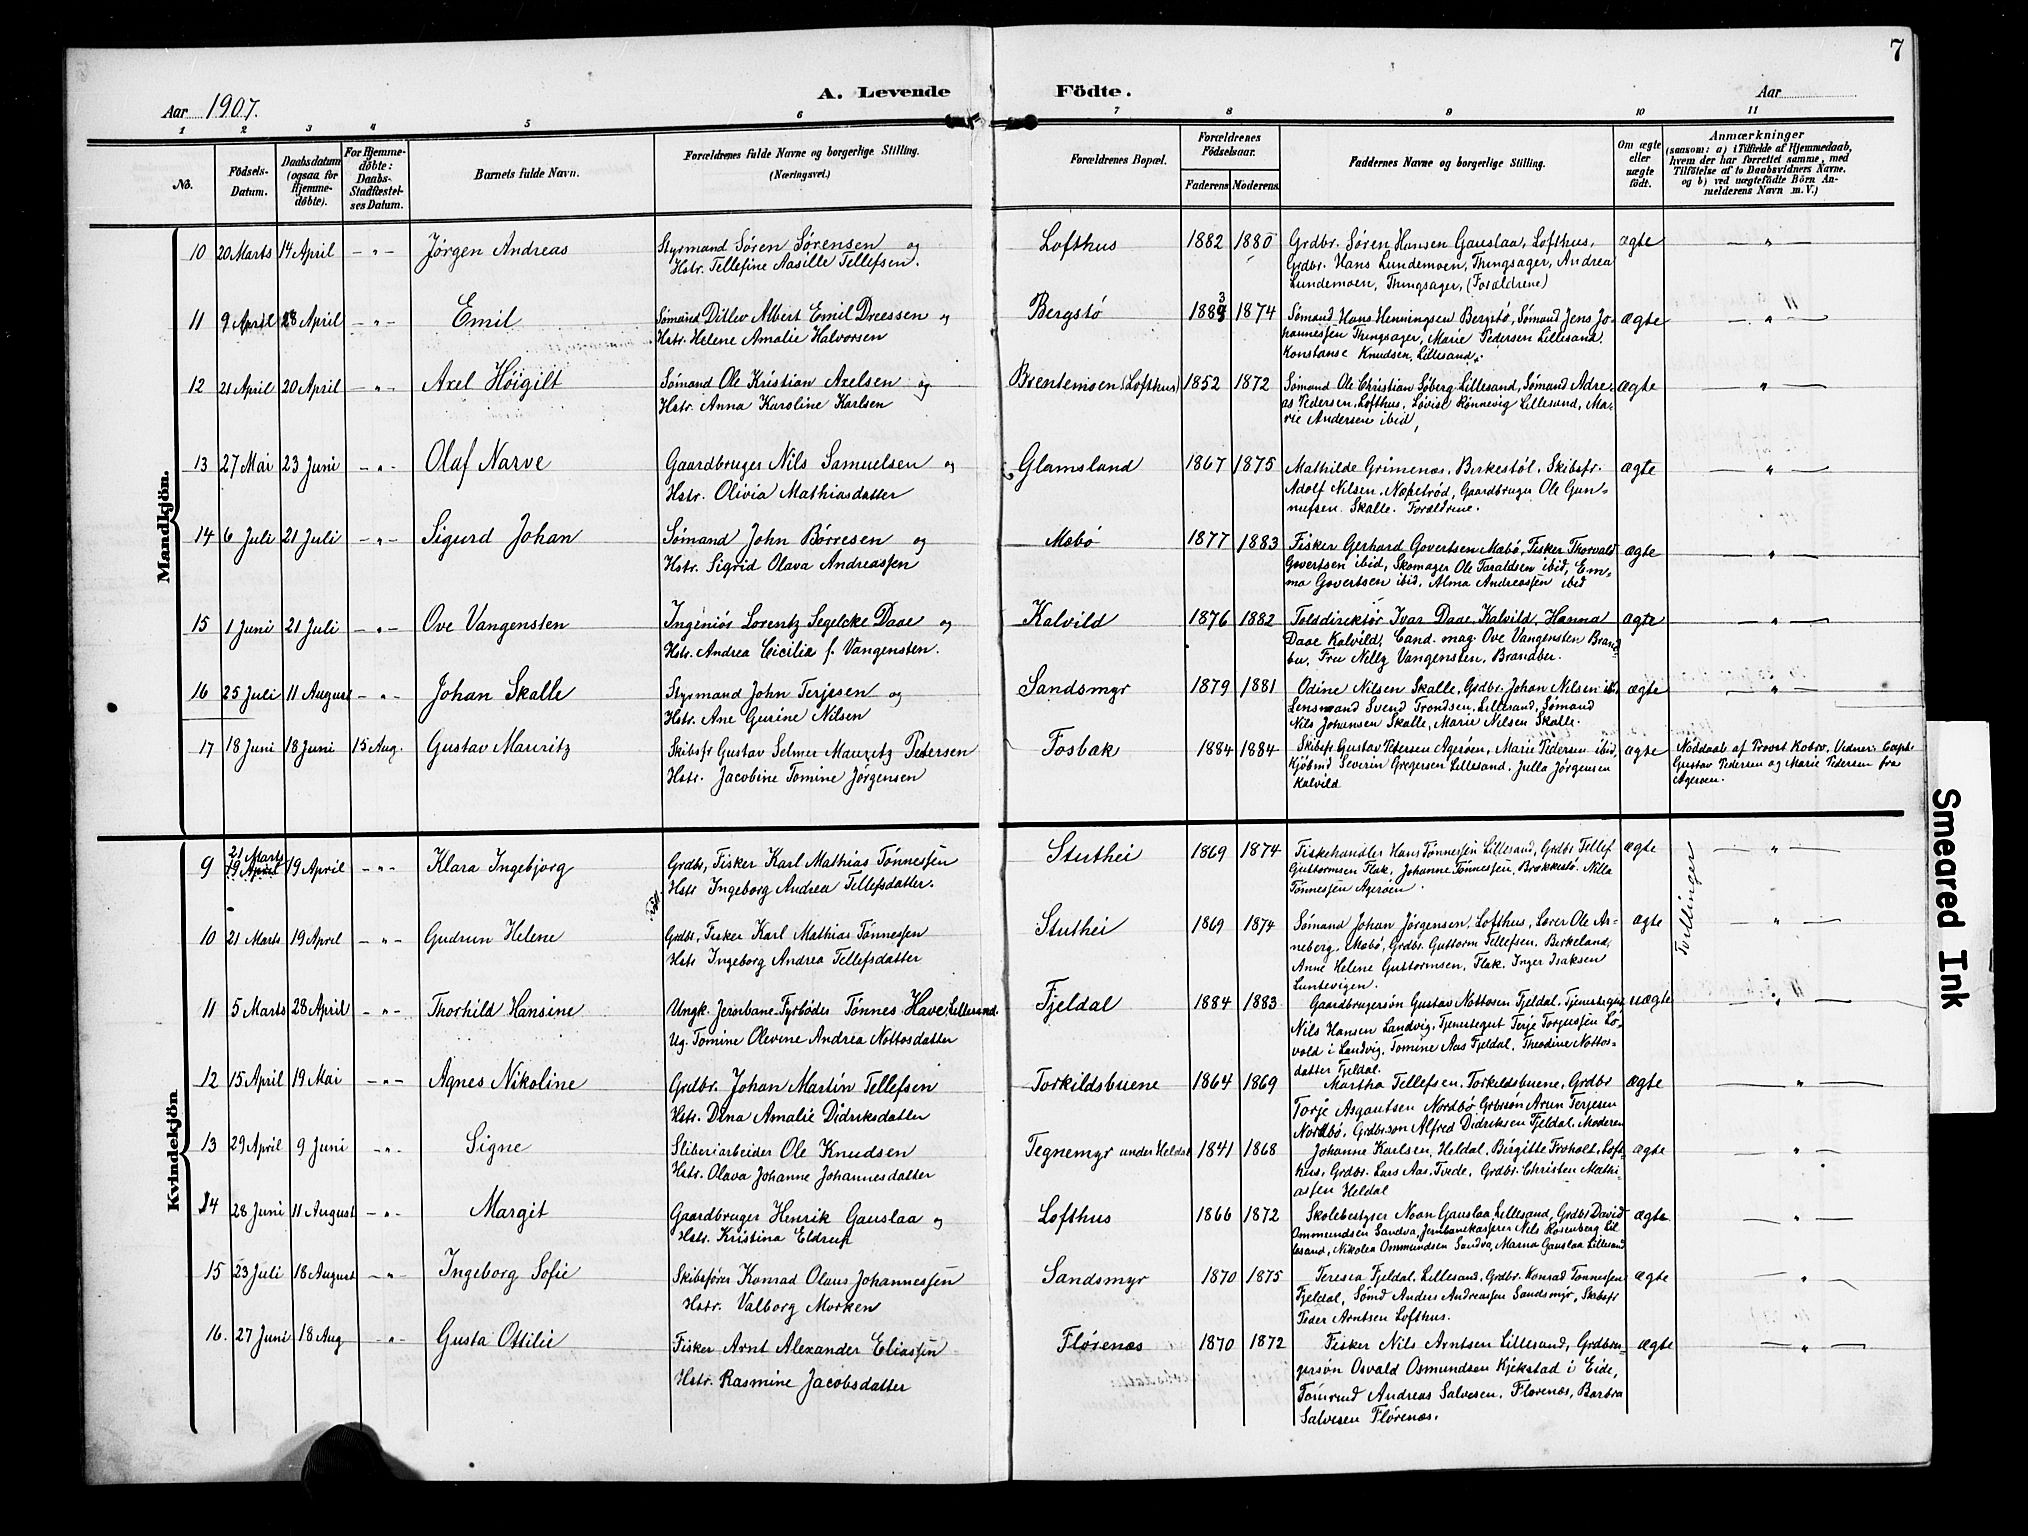 7
Aar 1907. A. Levende Födte. Aar
1 2 3 4 5 6 7 8 9 10 11
No. Födsels-Datum. Daabsdatum (ogsaa for Hjemmedøbte). For Hjemmedøbte: Daabs-Stadfæstelses Datum. Barnets fulde Navn. Forældrenes fulde Navne og borgerlige Stilling. (Næringsvei.) Forældrenes Bopæl. Forældrenes Födselsaar. Faderens Moderens. Faddernes Navne og borgerlige Stilling. Om ægte eller uægte födt. Anmærkninger (saasom: a) i Tilfælde af Hjemmedaab, hvem der har forrettet samme, med Tilföielse af to Daabsvidners Navne. og b) ved uægtefödte Börn Anmelderens Navn m. V.)
Mandkjön.
10 20 Marts 14 April — " — Jørgen Andreas Styrmand Søren Sørensen og Lofthus 1882 1880 Grdbr. Søren Hansen Gauslaa, Lofthus, ægte — " —
Hstr. Tellefine Aasille Tellefsen. Grdbr. Hans Lundemoen, Thingsager, Andrea
Lundemoen, Thingsager, (Forældrene)
11 9 April 28 April — " — Emil Sømand Ditlev Albert Emil Dreessen og Bergstø 1883 1874 Sømand Hans Henningsen Bergstø, Sømand Jens Jo- ægte — " —
Hstr. Helene Amalie Halvorsen hannessen Thingsager, Marie Pedersen Lillesand,
Konstanse Knudsen, Lillesand.
12 21 April 20 April — " — Axel Høigilt Sømand Ole Kristian Axelsen og Brentemoen (Lofthus) 1852 1872 Sømand Ole Christian Søberg Lillesand, Sømand Adre- ægte — " —
Hstr. Anna Karoline Karlsen as Pedersen, Lofthus, Lovise Rønnevig Lillesand, Ma-
rie Andersen ibid,
13 27 Mai 23 Juni — " — Olaf Narve Gaardbruger Nils Samuelsen og Glamsland 1867 1875 Mathilde Grimenæs, Birkestøl, Skibsfr. ægte — " —
Hstr. Olivia Mathiasdatter Adolf Nilsen, Næpetrød, Gaardbruger Ole Gun-
nufsen. Skalle. Forældrene.
14 6 Juli 21 Juli — " — Sigurd Johan Sømand John Børresen og Mæbø 1877 1883 Fisker Gerhard Govertsen Mæbø, Fisker Thorvald ægte — " —
Hstr. Sigrid Olava Andreassen Govertsen ibid, Skomager Ole Taraldsen ibid, Em-
ma Govertsen ibid, Alma Andreassen ibid
15 1 Juni 21 Juli — " — Ove Vangensten Ingeniør Lorentz Segelcke Daae og Kalvild 1876 1882 Tolddirektør Ivar Daae Kalvild, Hanna ægte — " —
Hstr. Andrea Cicilia f. Vangensten. Daae Kalvild, Cand. mag. Ove Vangensten Brand-
bu, Fru Nelly Vangensten, Brandbu.
16 25 Juli 11 August — " — Johan Skalle Styrmand John Terjesen og Sandsmyr 1879 1881 Odine Nilsen Skalle, Grdbr. Johan Nilsen ib., ægte — " —
Hstr. Ane Gurine Nilsen Lensmand Svend Trondsen, Lillesand, Sømand
Nils Johansen Skalle, Marie Nilsen Skalle.
17 18 Juni 18 Juni 15 Aug. Gustav Mauritz Skibsfr Gustav Selmer Mauritz Pedersen Fosbæk 1884 1884 Skibsfr Gustav Pedersen Agerøen, Marie Pedersen ibid, ægte Nøddaab af Provst Kobro, Vidner: Capt.
Hstr. Jacobine Tomine Jørgensen Kjøbmd Severin Gregersen Lillesand, Julla Jørgensen Gustav Pedersen og Marie Pedersen fra
Kalvild Agerøen.
Kvindekjön
9 21 Marts 19 April 19 April — " — Klara Ingebjorg Grdbr, Fisker Karl Mathias Tønnessen Stuthei 1869 1874 Fiskehandler Hans Tønnessen Lillesand, Grdbr Tellef ægte Tvillinger — " —
Hstr Ingeborg Andrea Tellefsdatter. Guttormsen Flak, Johanne Tønnessen, Brækkestø. Nilla
Tønnessen Agerøen
10 21 Marts 19 April — " — Gudrun Helene Grdbr, Fisker Karl Mathias Tønnessen Stuthei 1869 1874 Sømand Johan Jörgensen, Lofthus, Lærer Ole Ar- ægte — " —
Hstr Ingeborg Andrea Tellefsdatter neberg, Mæbø, Grdbr. Guttorm Tellefsen, Birkeland,
Anne Helene Guttormsen, Flak, Inger Isaksen
Luntevigen.
11 5 Marts 28 April — " — Thorhild Hansine Ungk. Jernbane-Fyrbøder Tønnes Have, Lillesand. Fjeldal 1884 1883 Gaardbrugersøn Gustav Nottosen Fjeldal, Tjenestegut uægte — " —
Ug. Tomine Olevine Andrea Nottosdatter Nils Hansen Landvig, Tjenestegut Terje Torjussen Lø-
vold i Landvig, Tomine Aas Fjeldal, Theodine Nottos-
datter Fjeldal.
12 15 April 19 Mai — " — Agnes Nikoline Grdbr. Johan Martin Tellefsen Torkildsbuene 1864 1869 Martha Tellefsen, Torkildsbuene, Grdbr ægte — " —
Hstr. Dina Amalie Didriksdatter Torje Asgautsen Nordbø Grbrsøn Arun Terjesen
Nordbø, Grdbrson Alfred Didriksen Fjeldal, Moderen
13 29 April 9 Juni — " — Signe Sliberiarbeider Ole Knudsen Tegnemyr under Heldal 1841 1868 Johanne Karlsen, Heldal, Birgitte Froholt, Loft- ægte — " —
Hstr. Olava Johanne Johannesdatter hus, Grdbr. Lars Aas, Tvede, Grdbr. Christen Mathi-
assen Heldal
14 28 Juni 11 August — " — Margit Gaardbruger Henrik Gauslaa og Lofthus 1866 1872 Skolebestyrer Noan Gauslaa, Lillesand, Grdbr David ægte — " —
Hstr. Kristina Eldrup Ommundsen Sandva, Jernbanekasserer Nils Rosenberg Lil
lesand, Nikolea Ommundsen Sandva, Marna Gauslaa Lillesand
15 23 Juli 18 August — " — Ingeborg Sofie Skibsfører Konrad Olaus Johannessen Sandsmyr 1870 1875 Teresia Fjeldal, Lillesand, Grdbr. Konrad Tønnessen ægte — " —
Hstr. Valborg Mørken Fjeldal, Sømd Anders Andreassen Sandsmyr, Skibsfr
Peder Arntsen Lofthus.
16. 27 Juni 18 Aug — " — Gusta Ottilie Fisker Arnt Alexander Eliassen Flørenæs 1870 1872 Fisker Nils Arntsen Lillesand, Grdbru- ægte — " —
Hstr. Rasmine Jacobsdatter gersøn Osvald Osmundsen Kjekstad i Eide,
Tømrmd Andreas Salvesen, Florenæs, Barbra
Salvesen Flørenæs.
Smeared Ink